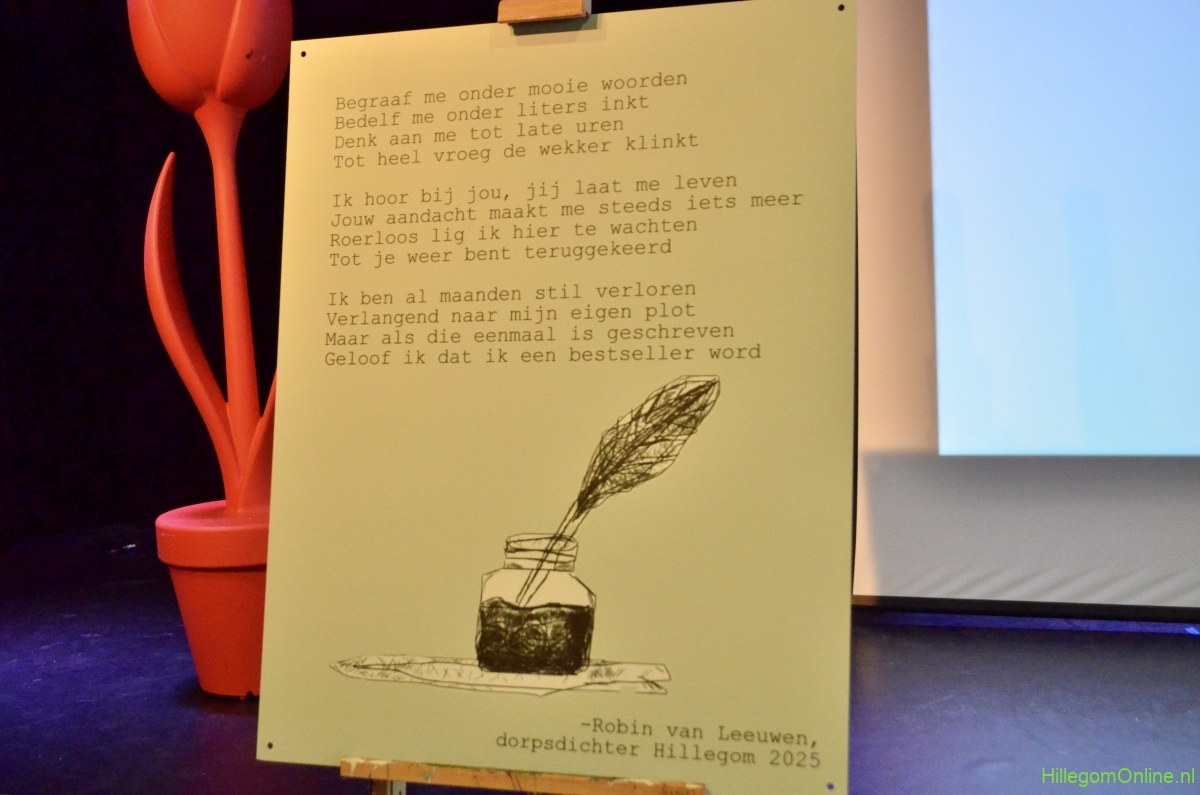 Begraaf me onder mooie woorden
Bedelf me onder liters inkt
Denk aan me tot late uren
Tot heel vroeg de wekker klinkt
Ik hoor bij jou, jij laat me leven
Jouw aandacht maakt me steeds iets meer
Roerloos lig ik hier te wachten
Tot je weer bent teruggekeerd
Ik ben al maanden stil verloren
Verlangend naar mijn eigen plot
Maar als die eenmaal is geschreven
Geloof ik dat ik een bestseller word
-Robin van Leeuwen,
dorpsdichter Hillegom 2025
HillegomOnline.nl